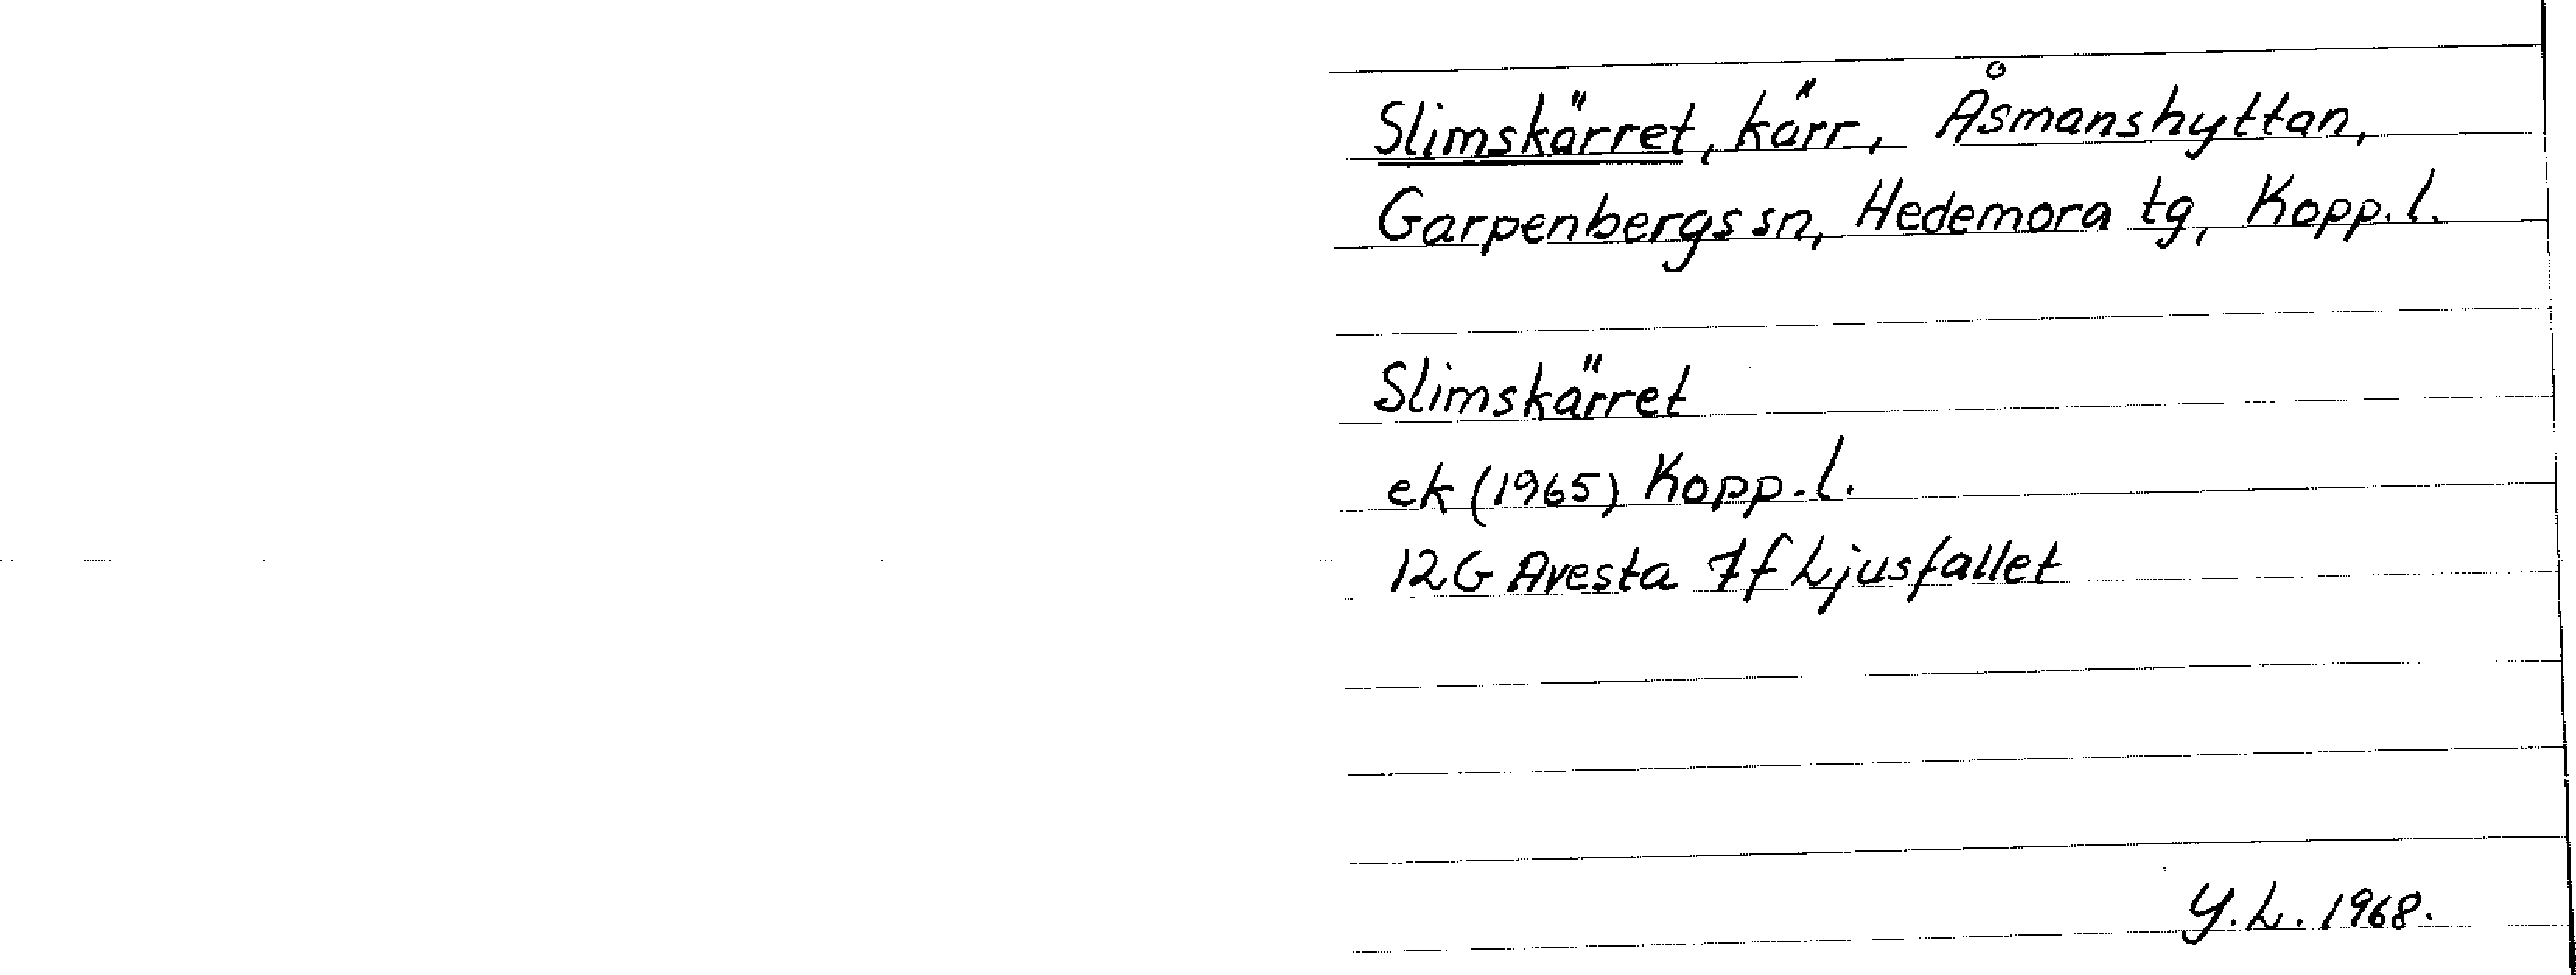 Slimskärret, kärr, Åsmanshyttan,
Garpenbergs sn, Hedemora tg, Kopp. l.
Slimskärret
ek (1965) Kopp. l.
12G Avesta 7f Ljusfallet
Y. L. 1968.